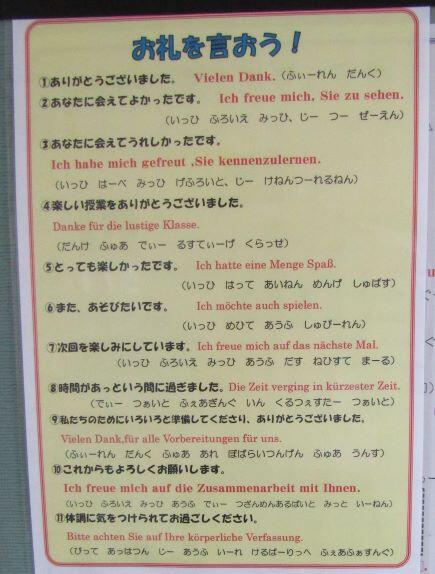 お礼を言おう！
①ありがとうございました。 Vielen Dank.（ふぃーれん だんく）
②あなたに会えてよかったです。 Ich freue mich, Sie zu sehen.
（いっひ ふろいえ みっひ、じー つー ぜーえん）
③あなたに会えてうれしかったです。
Ich habe mich gefreut ,Sie kennenzulernen.
（いっひ はーべ みっひ げふろいと、じー けねんつーれるねん）
④楽しい授業をありがとうございました。
Danke für die lustige Klasse.
（だんけ ふゅあ でぃー るすてぃーげ くらっせ）
⑤とっても楽しかったです。 Ich hatte eine Menge Spaß.
（いっひ はって あいねん めんげ しゅぱす）
⑥また、あそびたいです。 Ich möchte auch spielen.
（いっひ めひて あうふ しゅぴーれん）
⑦次回を楽しみにしています。 Ich freue mich auf das nächste Mal.
（いっひ ふろいえ みっひ あうふ だす ねひすて まーる）
⑧時間があっという間に過ぎました。Die Zeit verging in kürzester Zeit.
（でぃー つぁいと ふぇあぎんぐ いん くるつぇすたー つぁいと）
⑨私たちのためにいろいろと準備してくださり、ありがとうございました。
Vielen Dank,für alle Vorbereitungen für uns.
（ふぃーれん だんく ふゅあ あれ ほばらいつんげん ふゅあ うんす）
⑩これからもよろしくお願いします。
Ich freue mich auf die Zusammenarbeit mit Ihnen.
（いっひ ふろいえ みっひ あうふ でぃー つざんめんあるばいと みっと いーねん）
⑪体調に気をつけられてお過ごしください。
Bitte achten Sie auf Ihre körperliche Verfassung.
（びって あっはつん じー あうふ いーれ けるぱーりっへ ふぁあふぁすんぐ）